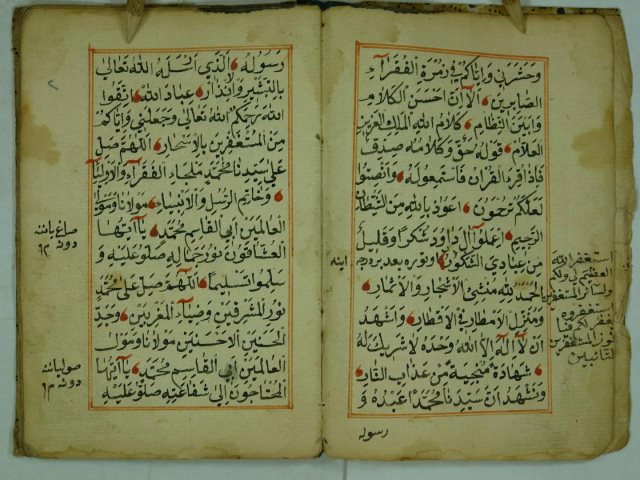 وحشرني واياكم في زمرة الفقراء
الصابرين الا ان احسن الكلام
وابين النظام كلام الله الملك العزيز
العلام قوله حق وكلامه صدق
فاذا قرء القران فاستمعوا له وانصتوا
لعلكم ترحمون اعوذ بالله من الشيطان
الرجيم اعملوا آل داود شكرا وقليل
من عبادي الشكور
الحمد لله منشئ الاشجار والاثمار
ومنزل الامطار في الاقطار واشهد
ان لا اله الا الله وحده لا شريك له
شهادة منجية من عذاب النار
ونشهد ان سيدنا محمدا عبده و
رسوله
استغفر الله
العظيم لي ولكم
ولسائر المستغفرين
استغفروه
رسوله الذي انزله الله تعالى
بالتبشير وانذار عباد الله اتقوا
الله رحمكم الله تعالى وجعلني واياكم
من المستغفرين بالاسحار اللهم صل
على سيدنا محمد ملجاء الفقراء والاولياء
وخاتم الرسل والانبياء مولانا ومولى
العالمين ابي القاسم محمد يا ايها
العشاقون نور جماله صلو عليه و
سلموا تسليما اللهم صل على محمد
نور المشرقين وضياء المغربين وجد
الحسنين الاحسنين مولانا ومولى
العالمين ابي القاسم محمد يا ايها
المحتاجون الى شفاعته صلو عليه